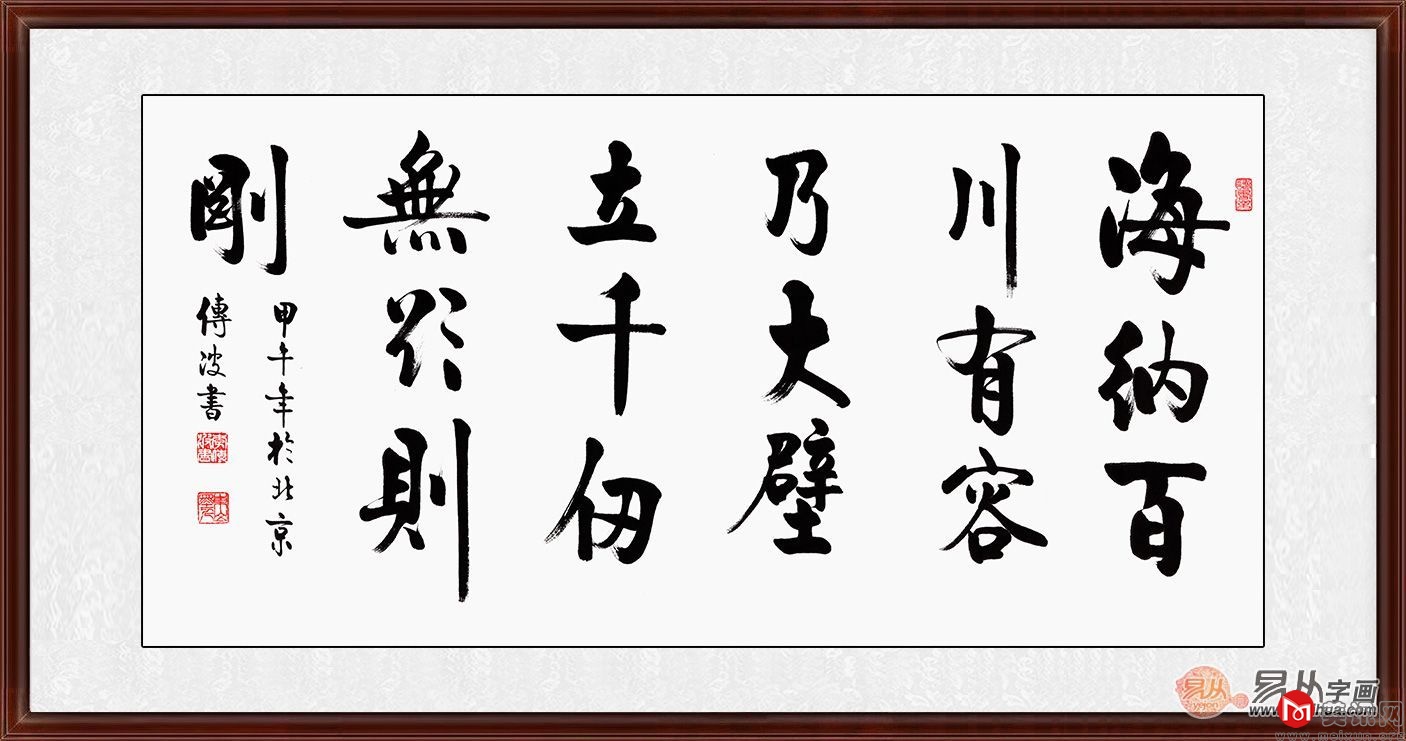 海納百
川有容
乃大壁
立千仞
無欲則
剛
甲午年於北京
傳波書
易从
易从字画